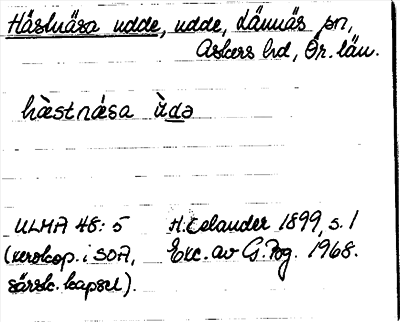 Hästnäsa udde, udde, Lännäs sn,
Askers hd, Ör. län.
hästnása ùdə
ULMA 48:5 H. Celander 1899, s. 1
(xerokop. i SOA, Exc. av G. Rog. 1968.
särsk. kapsel).